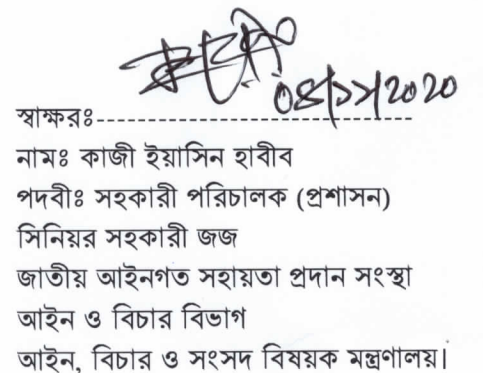 স্বাক্ষরঃ-----------------------------
নামঃ কাজী ইয়াসিন হাবীব
পদবীঃ সহকারী পরিচালক (প্রশাসন)
সিনিয়র সহকারী জজ
জাতীয় আইনগত সহায়তা প্রদান সংস্থা
আইন ও বিচার বিভাগ
আইন, বিচার ও সংসদ বিষয়ক মন্ত্রণালয়।